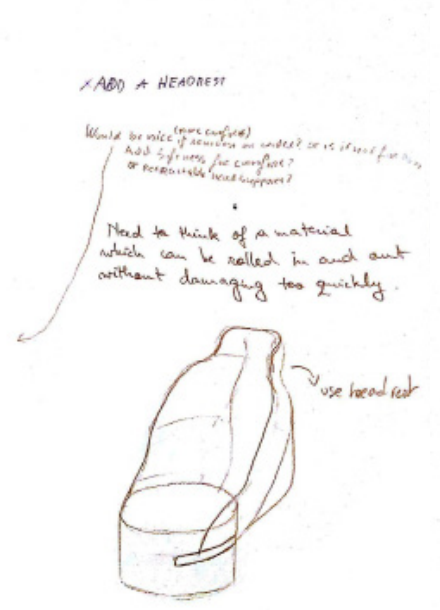 × ADD A HEADREST
Would be nice (more comfort)
if remains in
Add softness for comfort?
or retractable head support?
Need to think of a material
which can be rolled in and out
without damaging too quickly.
use head rest